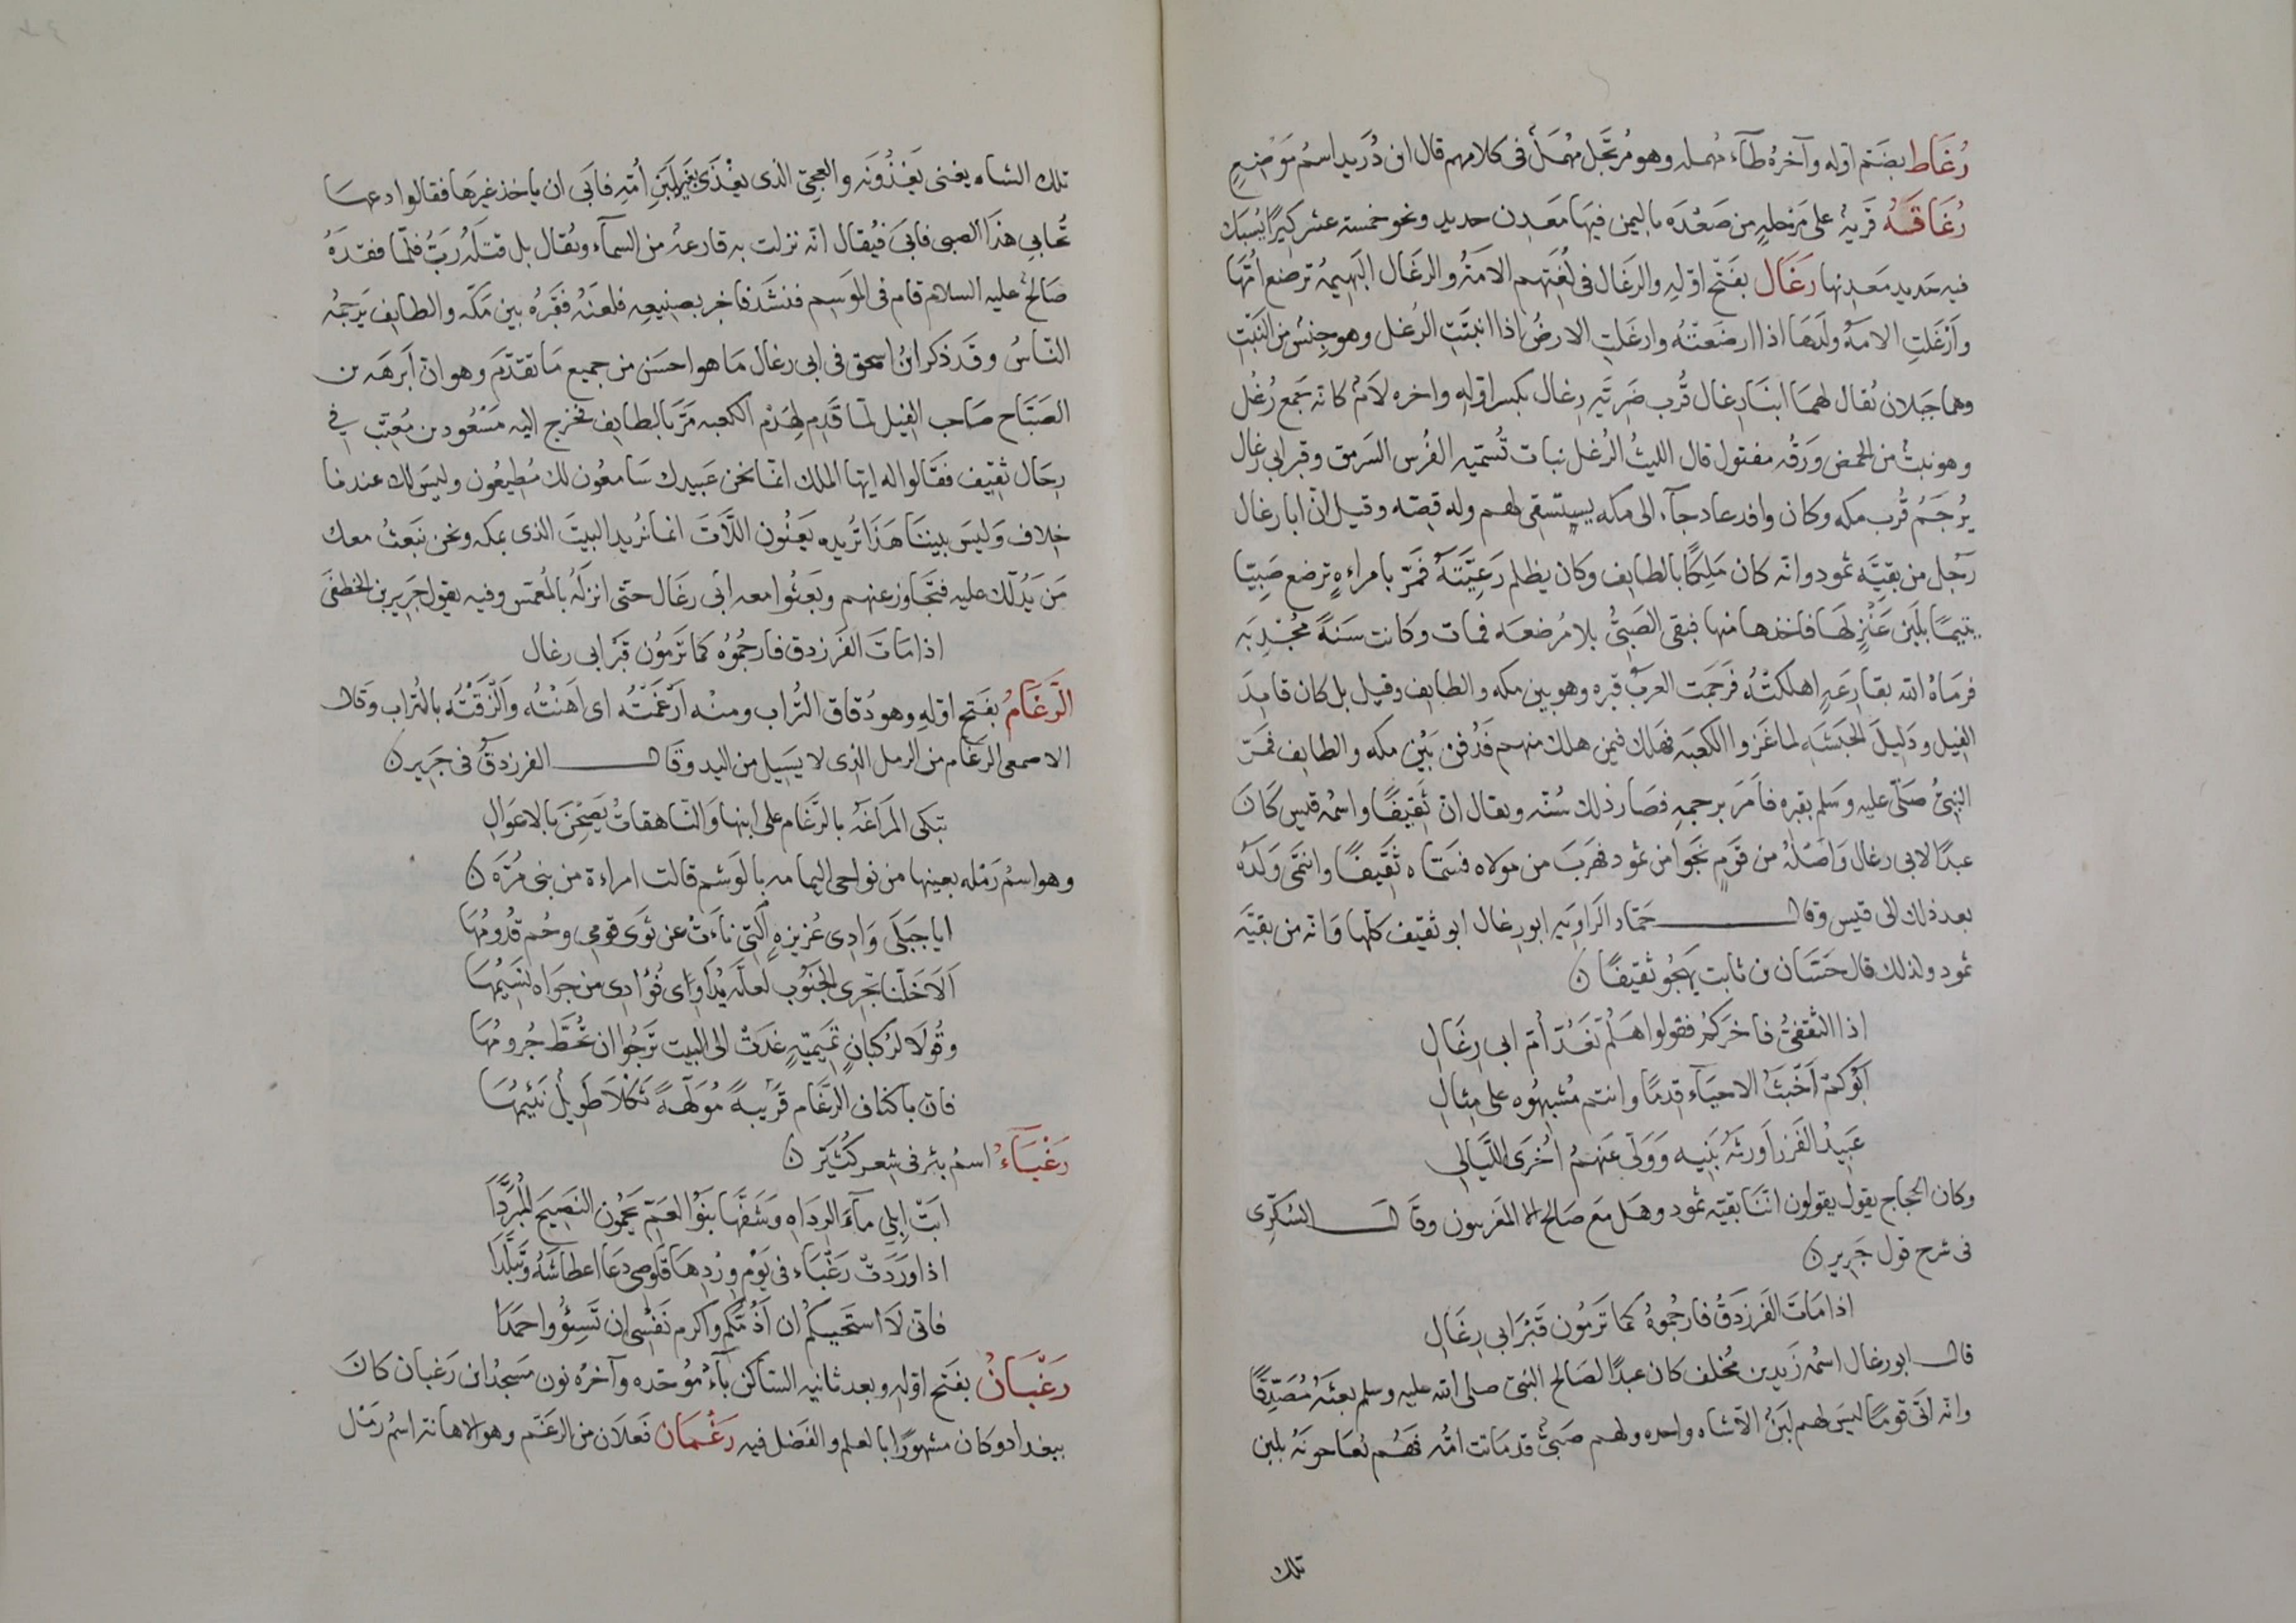 رُغَاط بضَم اوله وآخره طآء مهمله وهو مُرتَجَل مُهمَل فى كلامهم قال ابن دُرَيد اسمُ مَوضِعٍ
رُغَافَه قَريهٌ على مَرحلهٍ من صَعْدَه باليمن فيها مَعدِن حديد ونحو خمسة عشر كِيرًا يُسبَك
فيه حَديد مَعدِنها رَغَال بفَتح اوّلهِ والرَغَال فى لُغَتِهم الامَةُ والرغَال البَهيمهُ ترضع أُمّها
وأَرْغَلتِ الامةُ ولَدَها اذا ارضَعَتْهُ وارغَلتِ الارضُ اذا انبتَتِ الرُغل وهو جِنسٌ من النَبْتِ
وهما جَبَلان يُقال لهمَا ابنَا رِغال قُرب ضَرِيَّه رِغال بكسر اوّلهِ واخره لامٌ كانه جَمع رُغْل
وهو نبتٌ من الحمض وَرَقُه مفتول قال الليثُ الرُغل نبات تُسمّيه الفُرس السَرمق وقبر ابى رغال
يُرجَمُ قُرب مكه وكان وافد عاد جآء الى مكه يستسقى لهم وله قصّه وقيل انّ ابا رغال
رَجُل من بقيَّه ثمود وانّه كان مَلِكًا بالطايف وكان يظلم رَعِيَّتَهُ فمَرّ بامراءهٍ ترضع صَبِيّا
يَتيمًا بلَبَن عَنْزٍ لهَا فاخذها منها فبقى الصَبىُّ بلا مُرضعَه فمات وكانت سَنَةً مُجْدِبَه
فرمَاهُ الله بقارِعَهٍ اهلكتْهُ فرَجَمت العربُ قبره وهو بين مكه والطايف وقيل بل كان قايدَ
الفيل ودَليلَ الحَبَشَه لما غَزوا الكعبَه فهَلك فيمن هلك منهم فدُفن بَيْن مكه والطايف فمَرّ
النبىُّ صَلّى عليه وسَلم بقبره فأمَرَ برجمهِ فصَار ذلك سُنّه ويقال ان ثَقيفًا واسمُه قيس كَانَ
عبدًا لابى رغال وَاصْلهُ من قَومٍ نَجَوا من ثمود فهَربَ من مولاه فسَمّاه ثَقيفًا وانتمَى وَلَدُه
بعد ذلك الى قيس وقال حَمّاد الرَاوِيَه ابو رِغال ابو ثقيف كلّها وَانّه من بقيّه
ثمود ولذلك قال حَسّان بن ثابت يَهجُو ثقيفًا ن
اذا الثقفىُّ فاخرَكُم فقولوا هَلُمّ نَعُدّ أُمّ ابى رِغَالِ
ابُوكُم أَخبَثُ الاحيَآء قِدمًا وانتم مُشبِهُوه على مِثالِ
عَبيدُ الفَزر اَورثَهُ بَنيه وَوَلّى عَنهمُ اُخْرَى اللَيَالى
وكان الحجاج يقول يقولون انّنا بقيّه ثمود وهَل مَع صَالح الا المقربون وقال السُكَّرى
فى شرح قول جَرير ن
اذا مَاتَ الفَرزدَقُ فارجُموهُ كما تَرمُونَ قَبْرَ ابى رِغَالِ
قال ابو رغال اسمُه زَيد بن مُخلف كان عبدًا لصَالح النبىّ صلى الله عليه وسلم بعثَهُ مُصَدِّقًا
وانّه اتى قومًا ليسَ لهم لبَنٌ الاّ شاه واحده ولهم صَبىٌّ قد مَاتت امُّه فهُم يُعَاجونَهُ بلبن
تلك
تلك الشاه يعنى يَغذُونَه والعجىّ الذى يغْذَى بغير لَبَنِ أُمّهِ فابَى ان ياخذ غيرَها فقالوا دعهَا
تُحابِى هذَا الصبى فابَى فيُقال انّه نزلت به قارعهٌ من السمآء ويُقال بل قتلَهُ رَبّ فلمّا فقدَهُ
صَالحٌ عليه السلام قام فى الموسِم فنشَد فاخبر بصنيعهِ فلعَنَهُ فقَبرُهُ بين مَكّه والطايف يَرجمُه
النّاسُ وقَد ذكر ابنُ اسحق فى ابى رغال مَا هو احسَن من جميع مَا تقدّم وهو انّ اَبرَهَه بن
الصَبّاح صَاحب الفيل لمّا قَدِم لهَدْم الكعبه مَرّ بالطايف فخرج اليه مَسْعُود بن مُعَتّب فى
رِجَال ثقيف فقَالوا له ايّها الملك انمّا نحن عَبيدك سَامعُون لك مُطيعُون وليسَ لك عندنا
خِلاف وَليسَ بيتنَا هَذا تُريده يَعنُون اللّاتَ انما تُريد البيتَ الذى بمكه ونحن نَبعَثُ معك
مَن يَدُلّك عليه فتجَاوز عنهم وبَعثُوا معه ابى رغَال حتّى انزلَهُ بالمُغمّس وفيه يقول جَرير بن الخطفَى
اذا مَاتَ الفَرزدق فارجُمُوه كما تَرمُون قَبْرَ ابى رغال
الرَّغَامُ بفَتح اوّلهِ وهو دُقاق التُراب ومنْه اَرْغمْتُه اى اهَنْتُه والزَقْتُه بالتُراب وقال
الاصمعى الرَغَام من الرمل الذى لا يَسيل من اليد وقال الفرزدقُ فى جَرير ن
تبكى المَراغَهُ بالرَّغَام على ابنها وَالنّاهقاتُ يَصِحْنَ بالاعوَالِ
وهو اسمُ رَمْله بعينها من نواحى اليمامه بالوَشم قالت امراءة من بنى مُرّه ن
ايا جَبَلَى وَادِى عُزيزه التى نَاءَتْ عن ثوَى قومى وحُم قُدُومُهَا
اَلا خَلّنا تجرى الجنُوب لعلّه يُدَاوى فُؤادى من جَواه نَسيمُهَا
وقُولَا لرُكبَانٍ تَميميّهٍ غدَتْ الى البيت تَرجُوا ان تُحَطّ جُرُومُهَا
فان باكناف الرَّغَام قَريبَةً مُوَلَّهَةً ثَكْلَا طَويلٌ نَئيمُهَا
رَغْبَآءُ اسمُ بئر فى شِعر كُثَيّر ن
ابَتْ اِبِلى مَآءَ الرِدَاهِ وَشَفّهَا بَنُوا العَمّ يَحمُون النَضيحَ المُبَرّدَا
اذا وَرَدَتْ رَغْبَاء فى يَوْم وِرْدِهَا قَلوصى دَعَا اعطَاشَهُ وَتَبَلّدَا
فانّى لَاستَحييكم ان اَذُمّكم واُكرم نَفسى ان تَسِيئُوا وَاحمَدَا
رَغْبَانُ بفَتح اوّلهِ وبعد ثانيه الساكن بآءٌ مُوَحّده وآخرهُ نون مَسجدُ ابن رَغبان كان
ببغداد وكان مشهورًا بالعلم والفَضل فيه رَغْمَان فَعلَان من الرَغَم وهو الاهانه اسمُ رَمْل